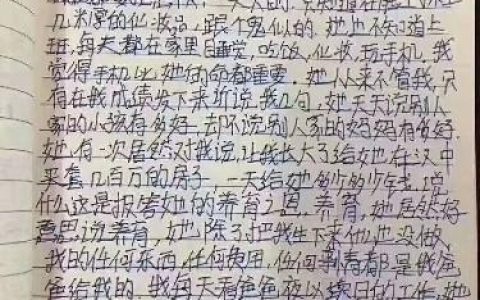 几米厚的化妆品，跟个鬼似的。她也不知道上
班，每天都在家里睡觉，吃饭，化妆，玩手机。我
觉得手机比她的命都重要。她从来不管我，只
有在我成绩发下来听说我几句，她天天说别人
家的小孩有多好，却不说别人家的妈妈有多好。
她有一次居然对我说，让我长大了给她在汉中
买套几百万的房子，一天给她多少多少钱，说
什么这是报答她的养育之恩，养育，她居然好
意思说养育，她除了把我生下来他也没做，
我的任何东西，任何费用，任何都是我爸
爸给我的。我每天看爸爸夜以续日的工作，她